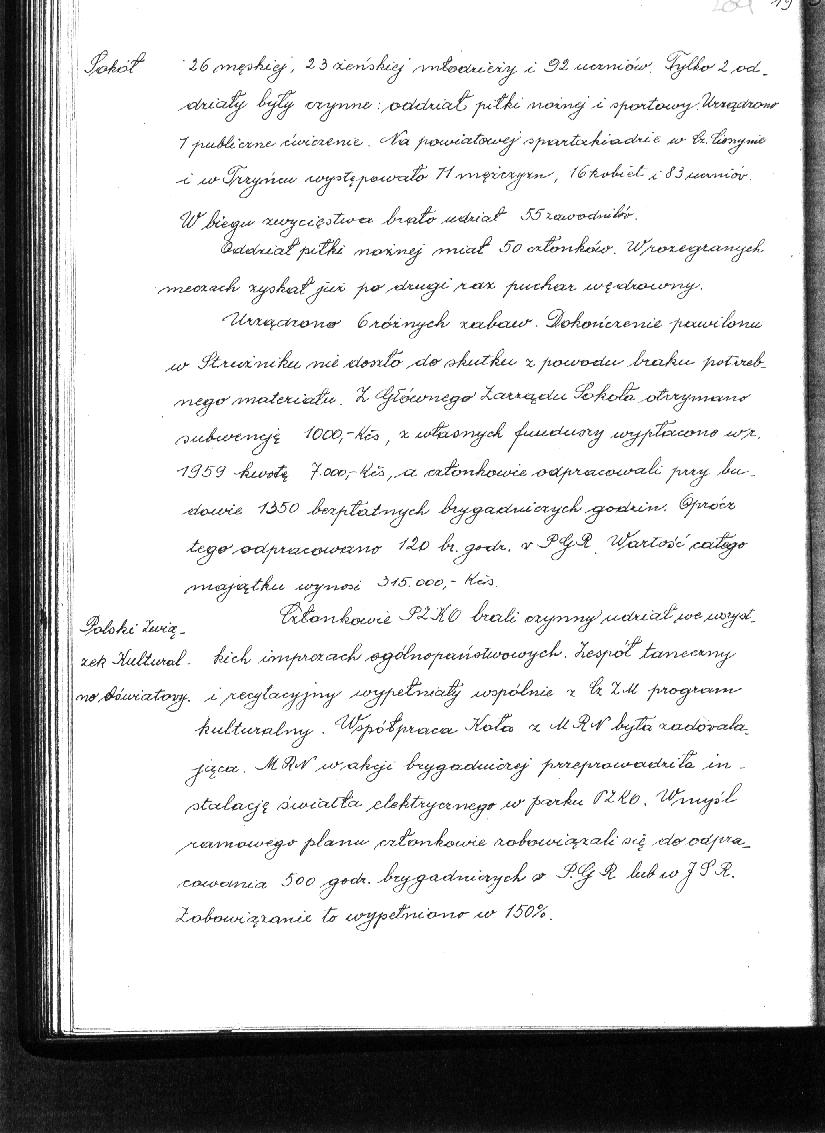 204 19
Sokół 26 męskiej, 23 żeńskiej młodzieży i 92 uczniów. Tylko 2 od-
działy były czynne: oddział piłki nożnej i sportowy. Urządzono
1 publiczne ćwiczenie. Na powiatowej spartakiadzie w Cz. Cieszynie
i w Trzyńcu występowało 71 mężczyzn, 16 kobiet i 83 uczniów.
W biegu zwycięstwa brało udział 55 zawodników.
Oddział piłki nożnej miał 50 członków. W rozegranych
meczach zyskał już po drugi raz puchar wędrowny.
Urządzono 6 różnych zabaw. Dokończenie pawilonu
w Strużniku nie doszło do skutku z powodu braku potrzeb-
nego materiału. Z Głównego Zarządu Sokoła otrzymano
subwencję 1000,- Kčs, z własnych funduszy wypłacono w r.
1959 kwotę 7.000,- Kčs, a członkowie odpracowali przy bu-
dowie 1350 bezpłatnych brygadniczych godzin. Oprócz
tego odpracowano 120 br. godz. v P G R. Wartość całego
majątku wynosi 315.000,- Kčs.
Członkowie PZKO brali czynny udział we wszyst-
Polski Zwią-
zek Kultural- kich imprezach ogólnopaństwowych. Zespół taneczny
no Oświatowy. i recytacyjny wypełniały wspólnie z Cz Z M program
kulturalny. Współpraca Koła z M R N była zadowala-
jąca. M R N w akcji brygadniczej przeprowadziła in-
stalację światła elektrycznego w parku PZKO. W myśl
ramowego planu członkowie zobowiązali się do odpra-
cowania 500 godz. brygadniczych v P.G R lub w J S R.
Zobowiązanie to wypełniono w 150%.